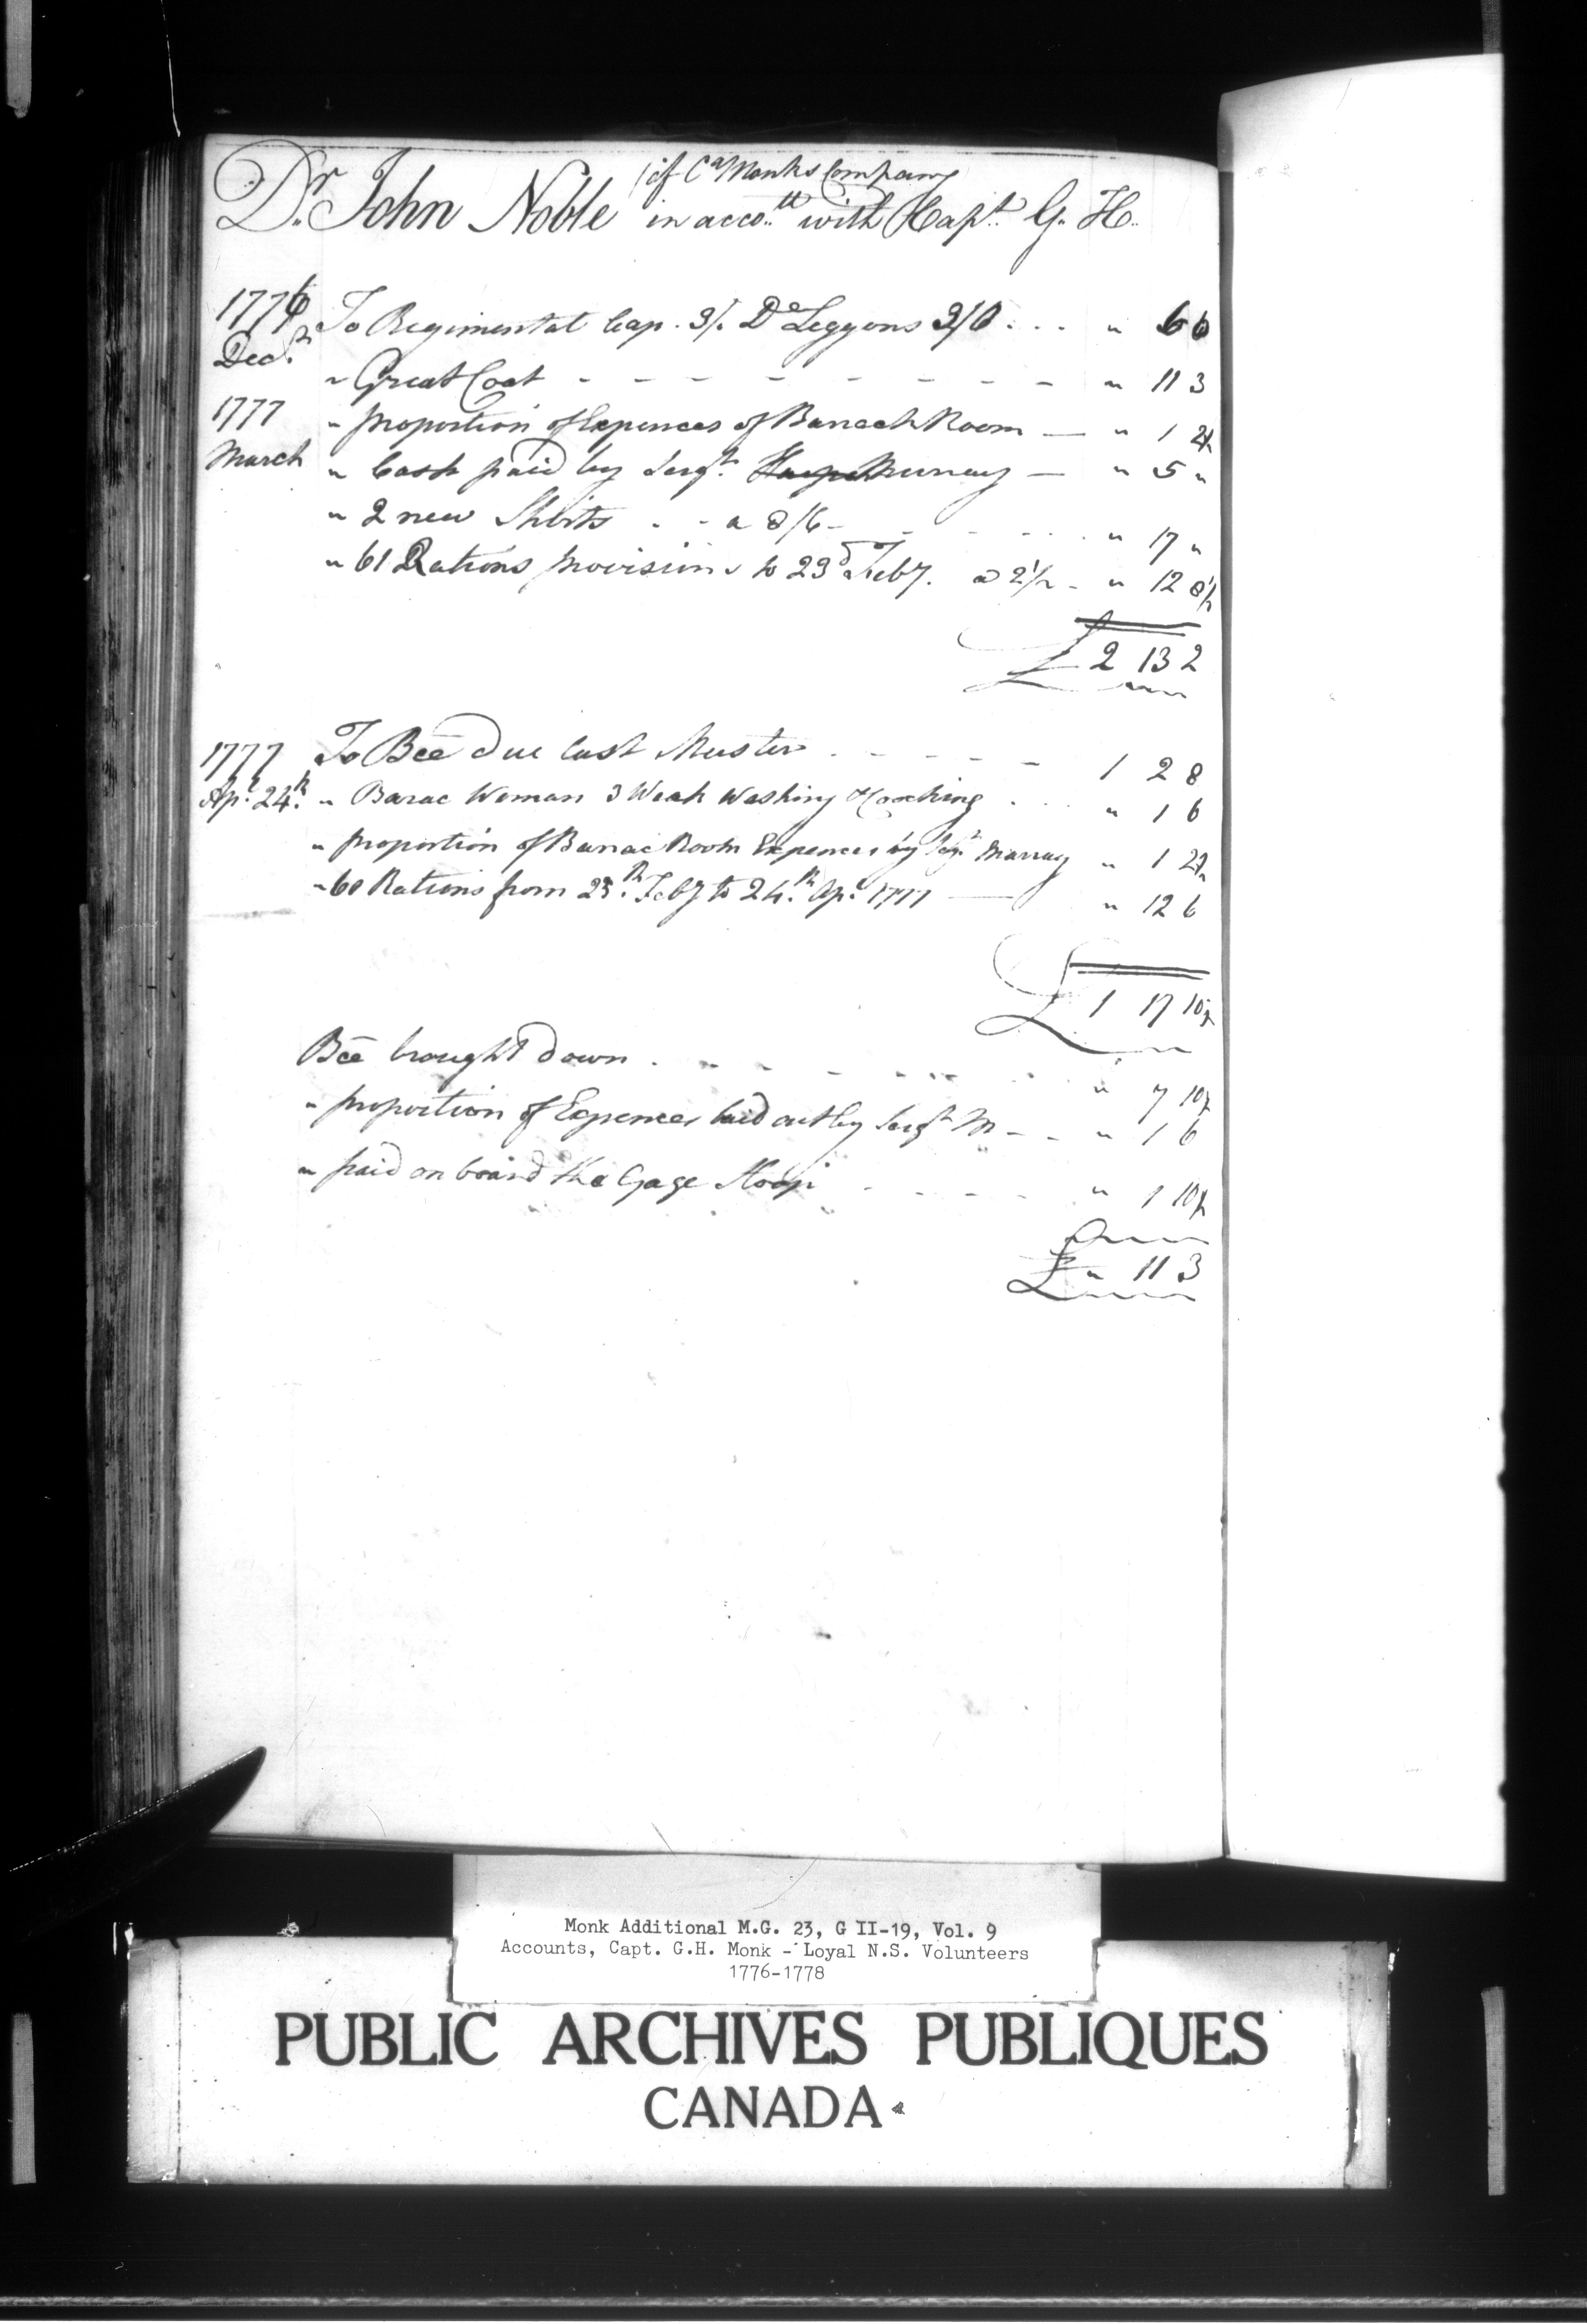 (of Cap Monks Company
Dr. John Noble in acco.tt with Capt. G. H.
1776 To Regimental Cap. 3/. Do Leggons 3/6 . . . " 6 6
Decr.
" Great Coat - - - - - - - - " 11 3
1777 " proportion of Expences of Barrack Room — " 1 2½
March " Cash paid by Sergt. Murray — " 5 "
" 2 new Shirts . . a 8/6 - - - . . . " 17 "
" 61 Rations provisions to 23d Feby. a 2½ - " 12 8½
£ 2 13 2
1777 To Bce due last Muster . - - - - - 1 2 8
Apl. 24th. " Barac Woman 3 Week Washing & Cooking . . . " 1 6
" proportion of Barrac Room Expences by Sgt. Murray " 1 2½
" 60 Rations from 23th. Feby to 24th. Apl. 1777 —— " 12 6
£ 1 17 10½
Bce brought down . - - - - - - " 7 10½
" proportion of Expences laid out by Sergt M - - " 1 6
" paid on board the Gage Sloop - - - - " 1 10½
£ " 11 3
Monk Additional M.G. 23, G II-19, Vol. 9
Accounts, Capt. G.H. Monk - Loyal N.S. Volunteers
1776-1778
PUBLIC ARCHIVES PUBLIQUES
CANADA